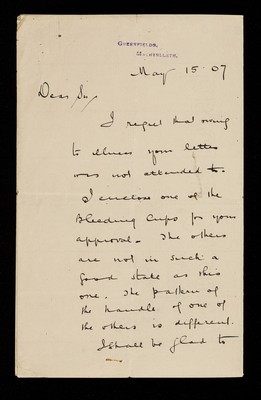 GREENFIELDS,
MACHYNLLETH.
May 15 07
Dear Sir,
I regret that owing
to illness your letter
was not attended to.
I enclose one of the
Bleeding Cups for your
approval. The others
are not in such a
good state as this
one. The pattern of
the handle of one of
the others is different.
I shall be glad to